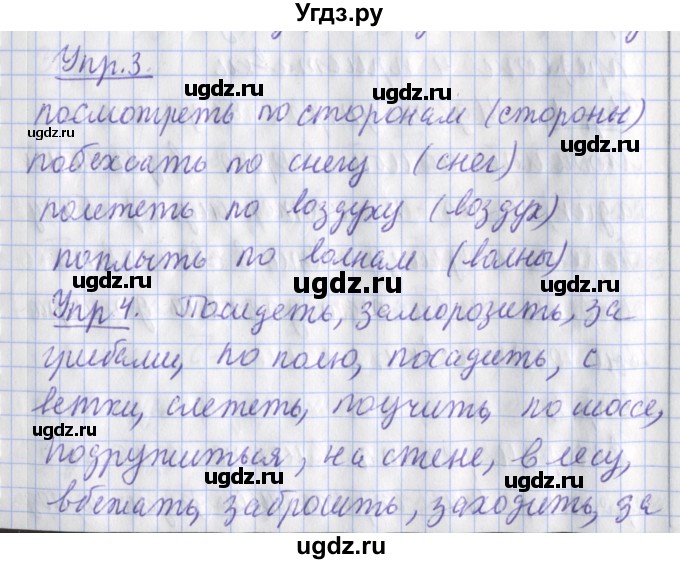 Угдз.ру
Упр.3.
посмотреть по сторонам (стороны)
побежать по снегу (снег)
полететь по воздуху (воздух)
поплыть по волнам (волны)
Упр 4. Посидеть, заморозить, за
грибами, по полю, посадить, с
ветки, слететь, поучить, по шоссе,
подружиться, на стене, в лесу,
вбежать, забросить, заходить, за
ugdz.ru
ugdz.ru
ugdz.ru
ugdz.ru
ugdz.ru
ugdz.ru
ugdz.ru
ugdz.ru
ugdz.ru
ugdz.ru
ugdz.ru
ugdz.ru